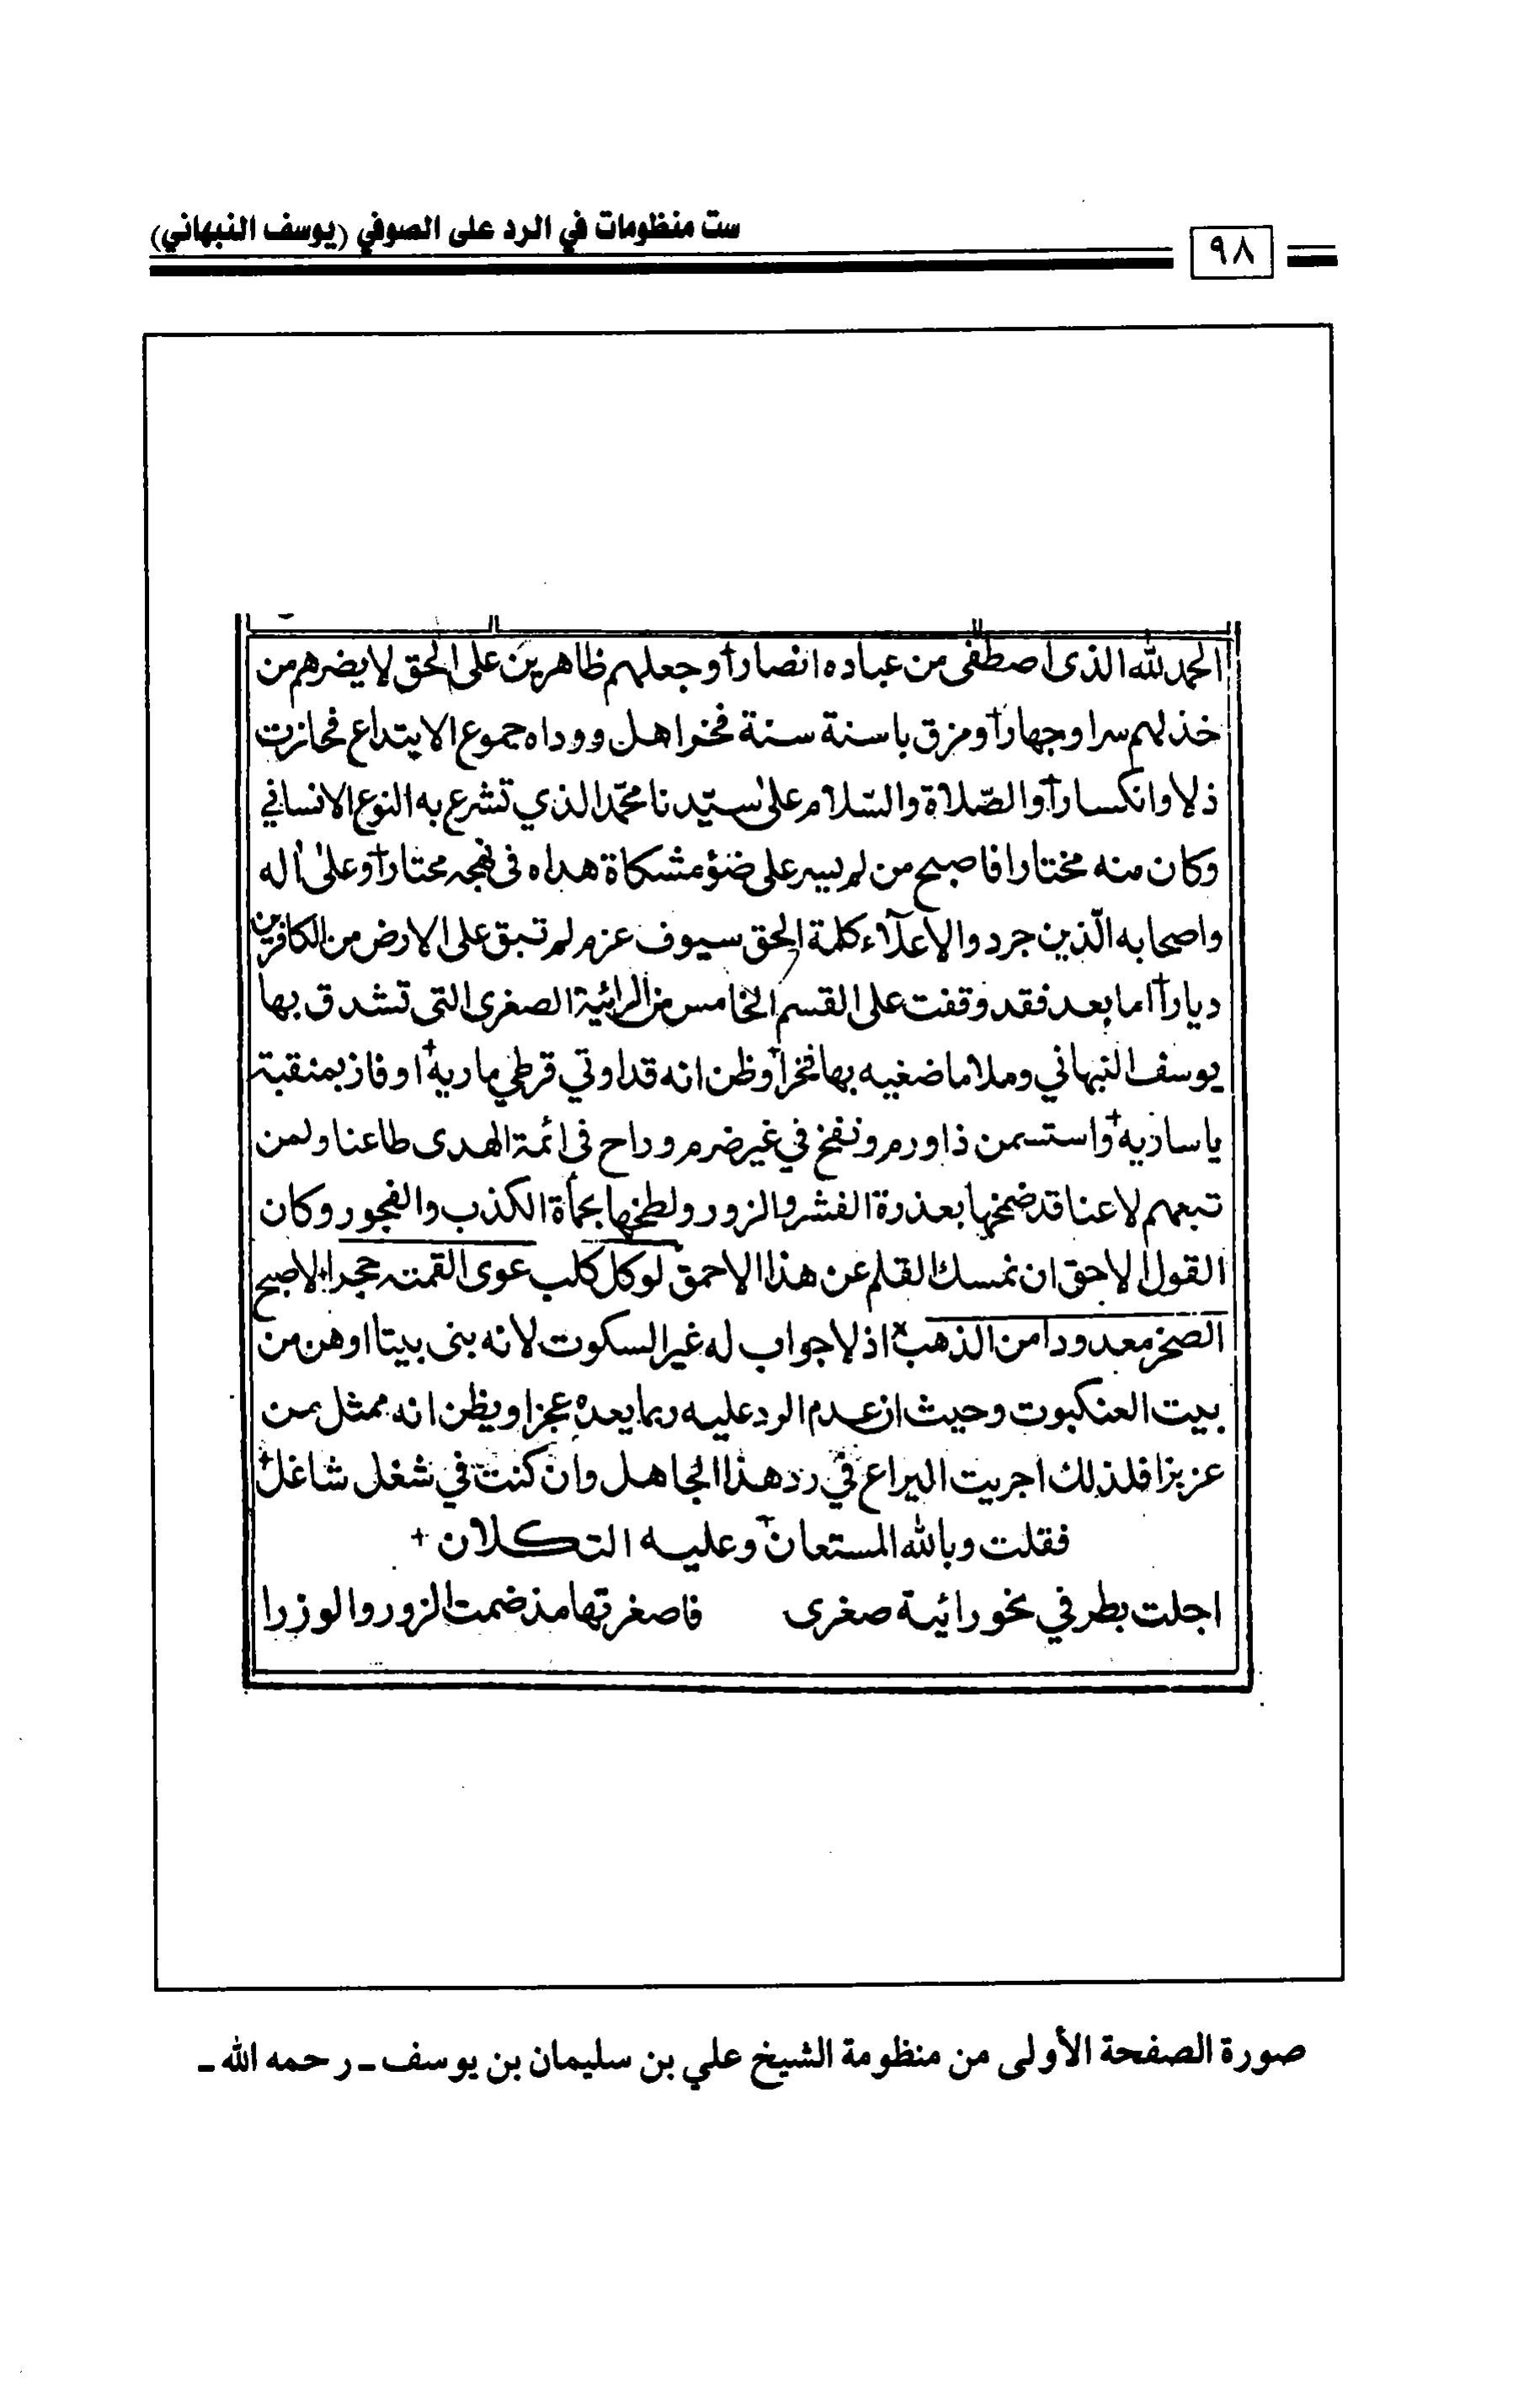 ٩٨
ست منظومات في الرد على الصوفي (يوسف النبهاني)
الحمد لله الذى اصطفى من عباده انصارا+ وجعلهم ظاهرين على الحق لا يضرهم من
خذلهم سرا وجهارا+ ومزق باسنة سنة فخر اهل ووداه جموع الابتداع فحازت
ذلا وانكسارا+ والصّلاة والسّلام على سيّدنا محمّد الذي تشرع به النوع الانساني
وكان منه مختارا فاصبح من لم يسر على ضؤ مشكاة هداه فى نهجه محتارا+ وعلى اله
واصحابه الّذين جردوا لاعلآء كلمة الحق سيوف عزم لم تبق على الارض من الكافرين
ديارا+ اما بعد فقد وقفت على القسم الخامس من الرائية الصغرى التى تشدق بها
يوسف النبهاني وملا ماضغيه بها فخرا+ وظن انه قد اوتي قرطي ماريه+ او فاز بمنقبة
ياساريه+ واستسمن ذا ورم ونفخ في غير ضرم وراح فى ائمة الهدى طاعنا ولمن
تبعهم لاعنا قد ضمخها بعذرة الفشر والزور ولطخها بحمأة الكذب والفجور وكان
القول الاحق ان نمسك القلم عن هذا الاحمق لو كل كلب عوى القمته حجرا+ لاصبح
الصخر معدودا من الذهب× اذ لا جواب له غير السكوت لانه بنى بيتا اوهن من
بيت العنكبوت وحيث ان عدم الرد عليه ربما يعده عجزا ويظن انه ممثل بمن
عزبزا فلذلك اجريت اليراع في رد هذا الجاهل وان كنت في شغل شاغل+
فقلت وبالله المستعان+ وعليه التكلان +
اجلت بطرفي نحو رائية صغرى فاصغرتها مذ ضمت الزور والوزرا
صورة الصفحة الأولى من منظومة الشيخ علي بن سليمان بن يوسف - رحمه الله -